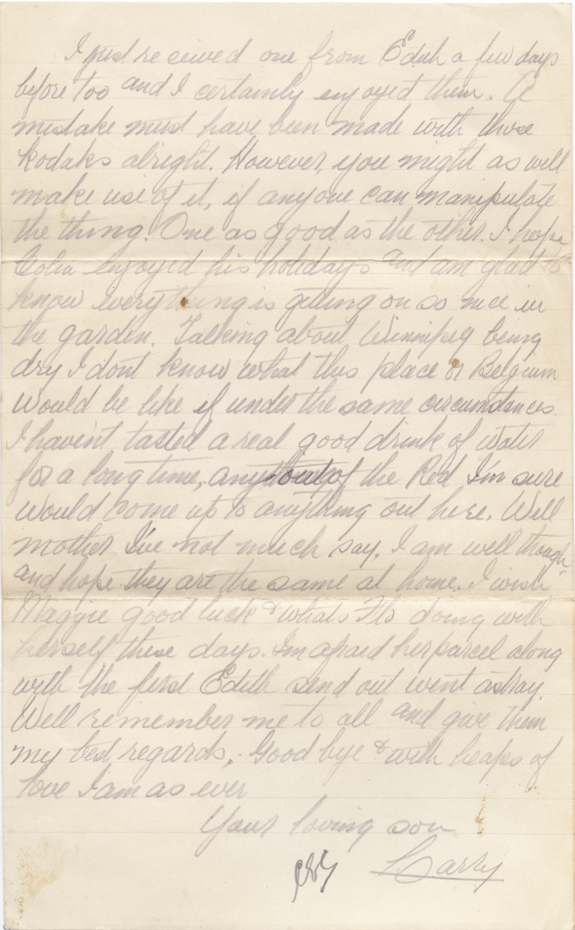 I just received one from Edith a few days
before too and I certainly enjoyed them. A
mistake must have been made with those
kodaks alright. However, you might as well
make use of it, if anyone can manipulate
the thing. One as good as the other. I hope
Colin enjoyed his holidays and am glad to
know everything is getting on so nice in
the garden. Talking about Winnipeg being
dry I dont know what this place of Belgium
would be like if under the same circumstances.
I havent tasted a real good drink of water
for a long time, any out of the Red I'm sure
would come up to anything out here. Well
mother I've not much say, I am well though
and hope they are the same at home. I wish
Maggie good luck & whats Flo doing with
herself these days. Im afraid her parcel along
with the first Edith send out went astray.
Well remember me to all and give them
my best regards. Good bye & with heaps of
love I am as ever
Your loving son
Harry